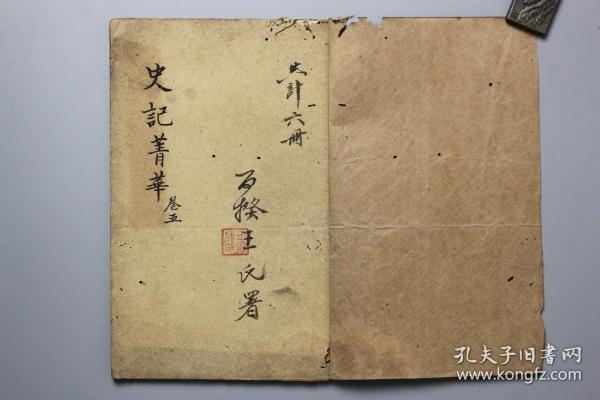 共计六册
百揆王氏署
史記菁華 卷五
孔夫子旧書网
www.kongfz.com